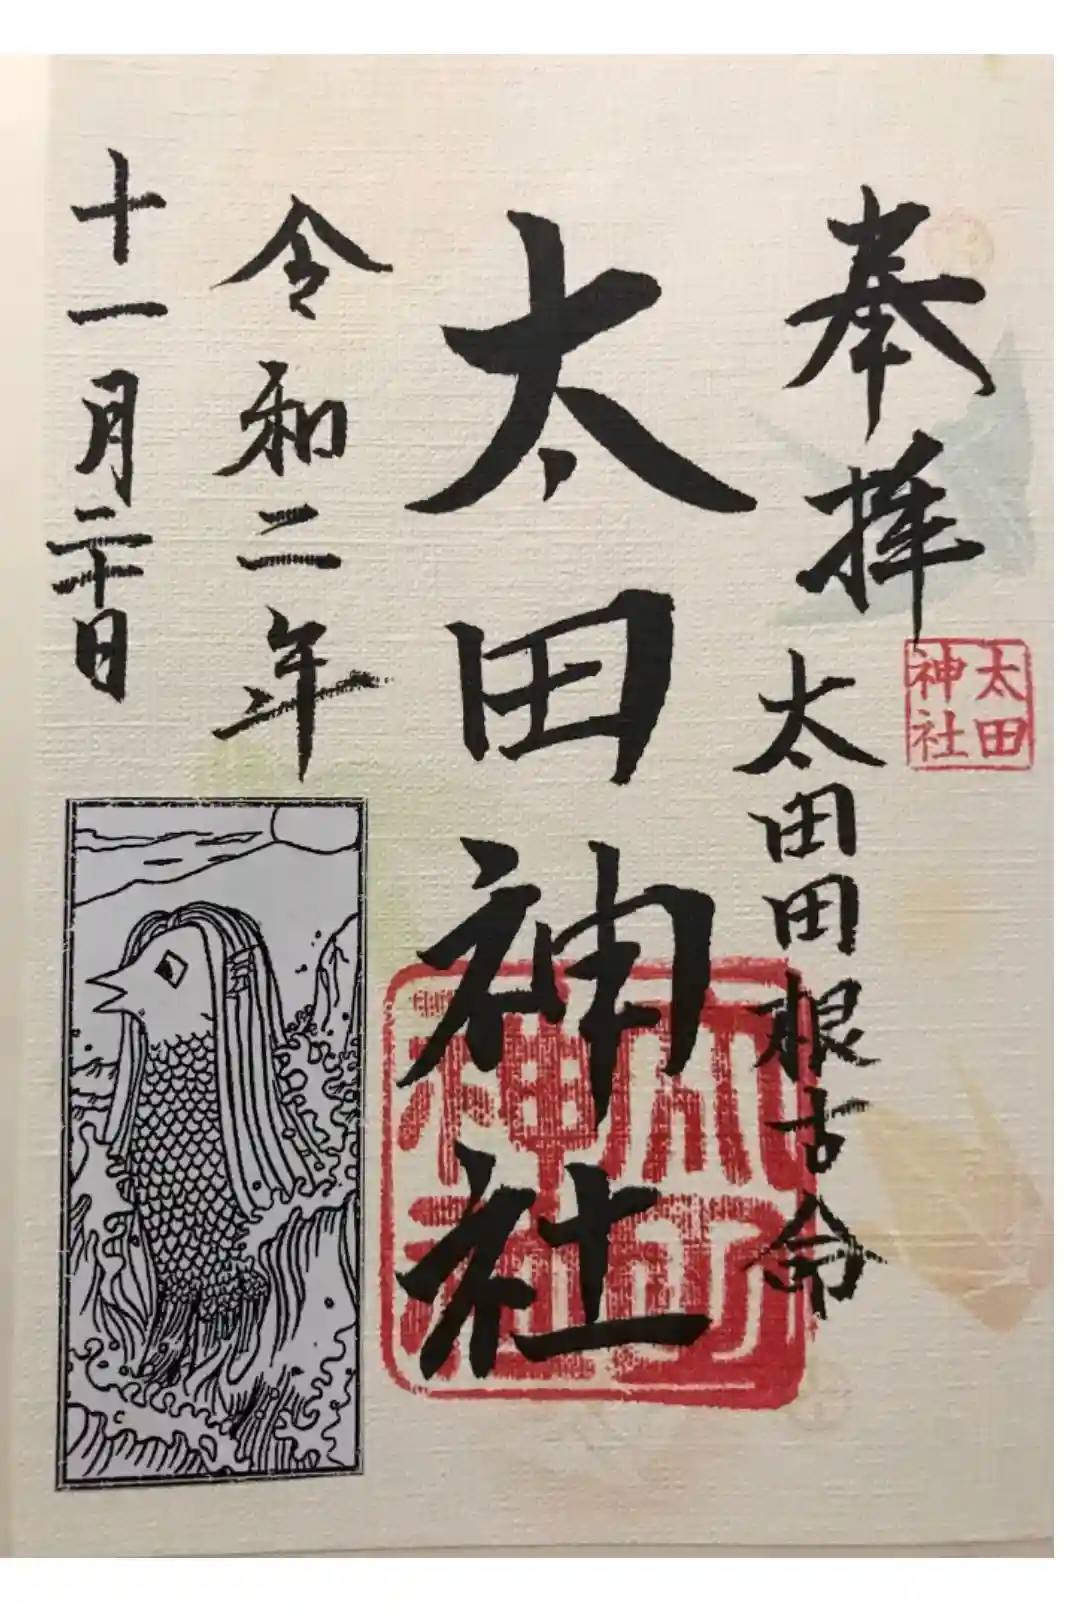 奉拝
太田神社
太田田根古命
太田神社
令和二年
十一月二十日